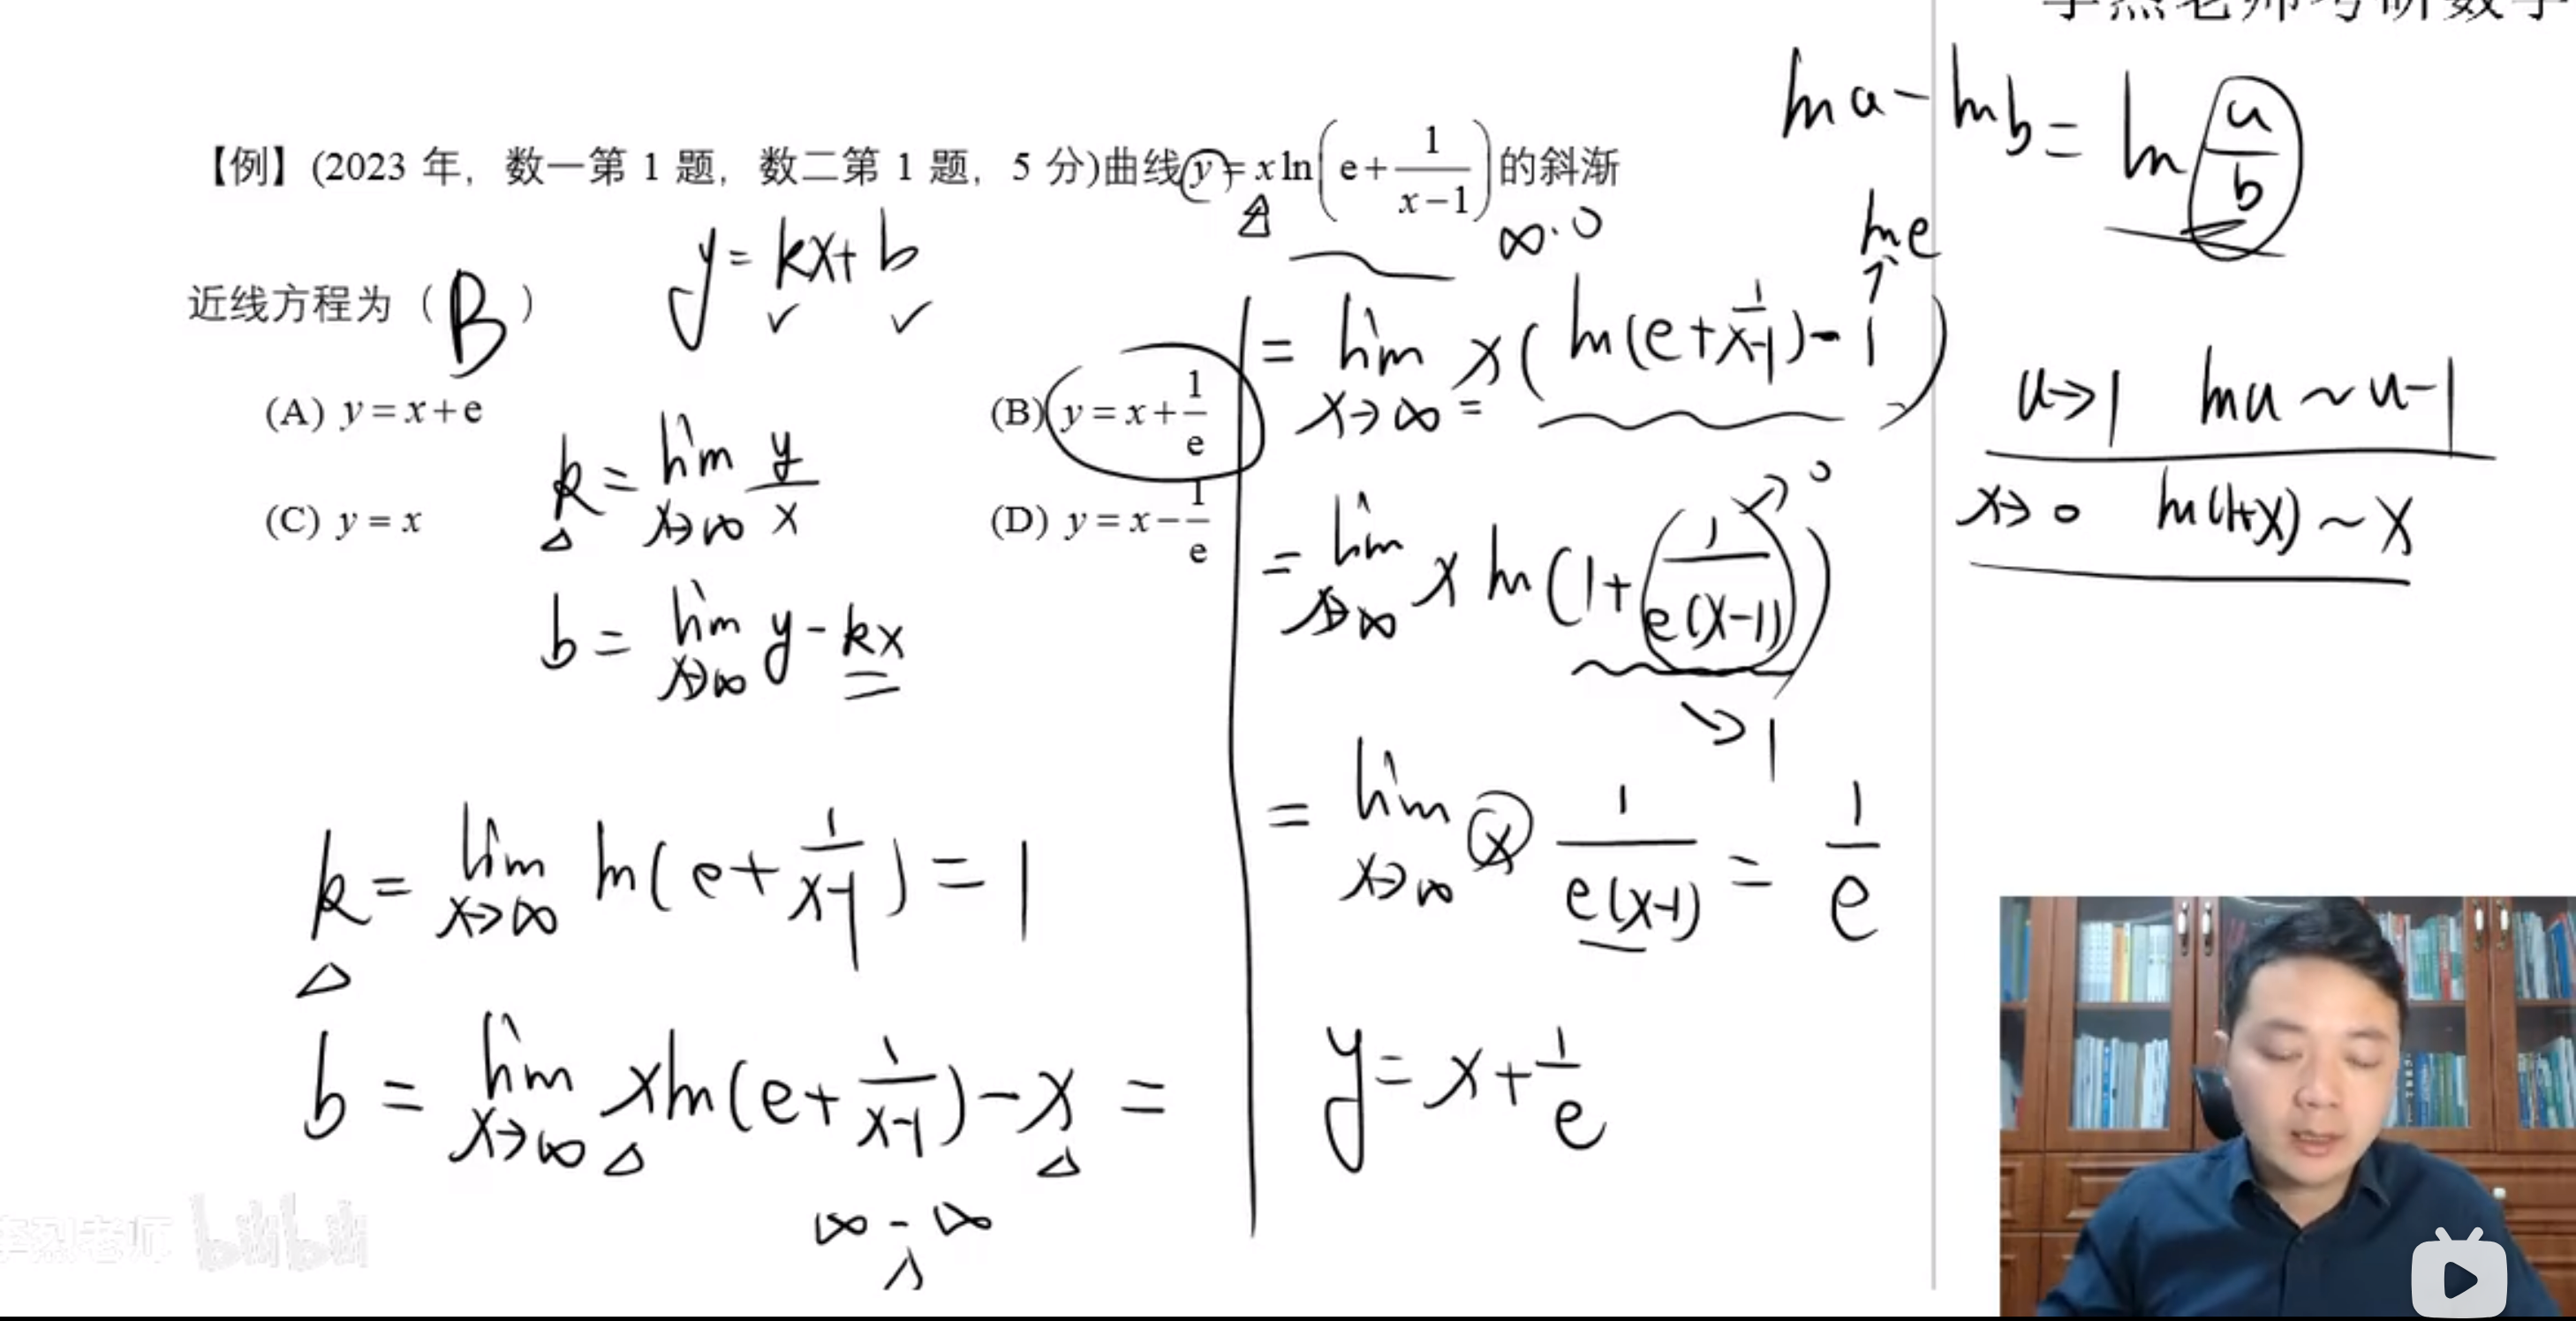 李烈老师考研数学
【例】(2023 年，数一第 1 题，数二第 1 题，5 分)曲线 y = x ln(e + 1/(x−1)) 的斜渐
近线方程为（ B ）
(A) y = x + e
(B) y = x + 1/e
(C) y = x
(D) y = x − 1/e
y = kx + b
✓ ✓
k = lim x→∞ y/x
b = lim x→∞ y − kx
k = lim x→∞ ln(e + 1/(x−1)) = 1
b = lim x→∞ x ln(e + 1/(x−1)) − x =
∞ − ∞
∞·0
ln e
= lim x→∞ x(ln(e + 1/(x−1)) − 1)
= lim x→∞ x ln(1 + 1/(e(x−1)))
→ 0
→ 1
= lim x→∞ x 1/(e(x−1)) = 1/e
y = x + 1/e
ln a − ln b = ln a/b
u → 1 ln u ~ u − 1
x → 0 ln(1+x) ~ x
李烈老师 bilibili